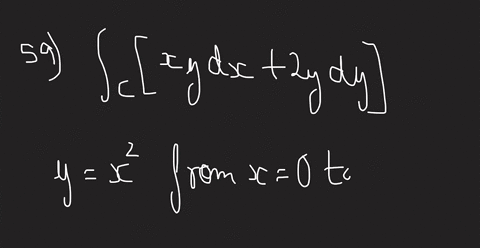 59) ∫_C [xy dx + 2y dy]
y = x² from x = 0 to